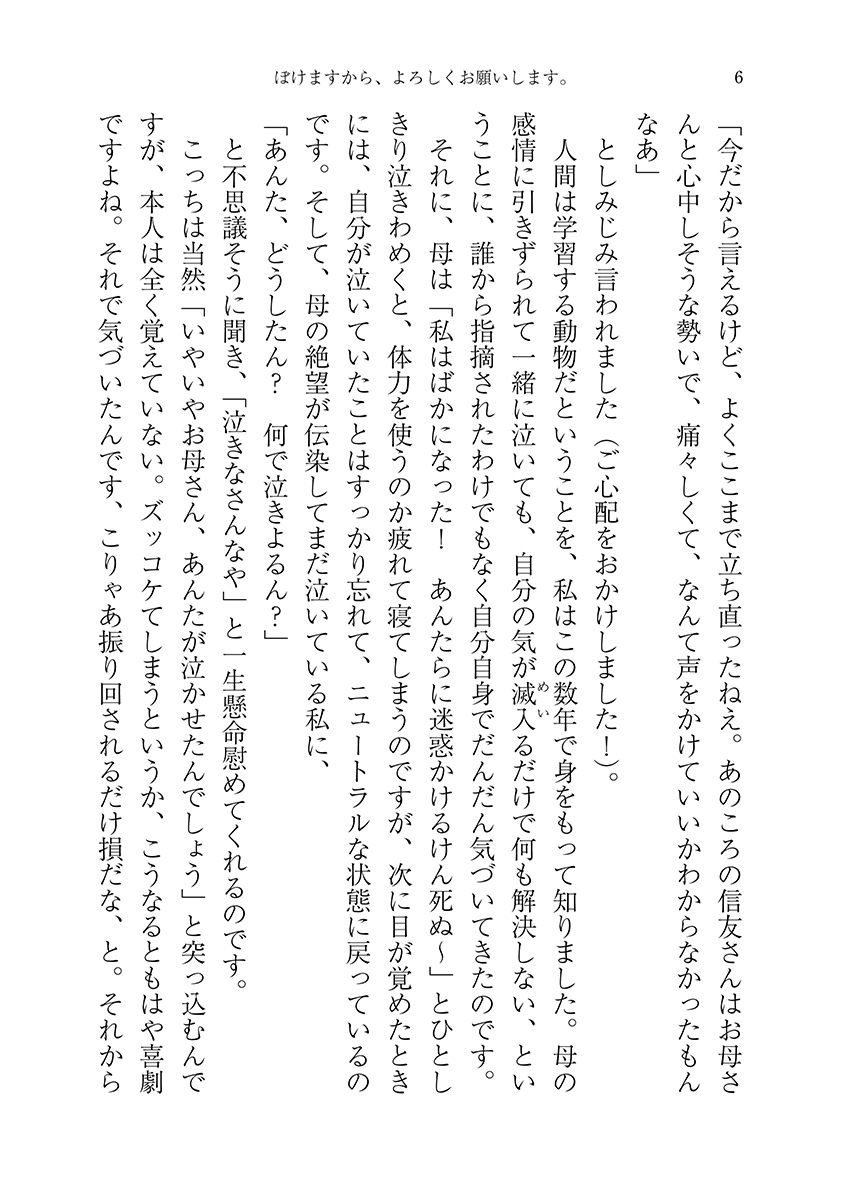 ぼけますから、よろしくお願いします。
6
「今だから言えるけど、よくここまで立ち直ったねえ。あのころの信友さんはお母さ
んと心中しそうな勢いで、痛々しくて、なんて声をかけていいかわからなかったもん
なあ」
　としみじみ言われました（ご心配をおかけしました！）。
　人間は学習する動物だということを、私はこの数年で身をもって知りました。母の
感情に引きずられて一緒に泣いても、自分の気が滅入るだけで何も解決しない、とい
めい
うことに、誰から指摘されたわけでもなく自分自身でだんだん気づいてきたのです。
　それに、母は「私はばかになった！　あんたらに迷惑かけるけん死ぬ～」とひとし
きり泣きわめくと、体力を使うのか疲れて寝てしまうのですが、次に目が覚めたとき
には、自分が泣いていたことはすっかり忘れて、ニュートラルな状態に戻っているの
です。そして、母の絶望が伝染してまだ泣いている私に、
「あんた、どうしたん？　何で泣きよるん？」
　と不思議そうに聞き、「泣きなさんなや」と一生懸命慰めてくれるのです。
　こっちは当然「いやいやお母さん、あんたが泣かせたんでしょう」と突っ込むんで
すが、本人は全く覚えていない。ズッコケてしまうというか、こうなるともはや喜劇
ですよね。それで気づいたんです、こりゃあ振り回されるだけ損だな、と。それから